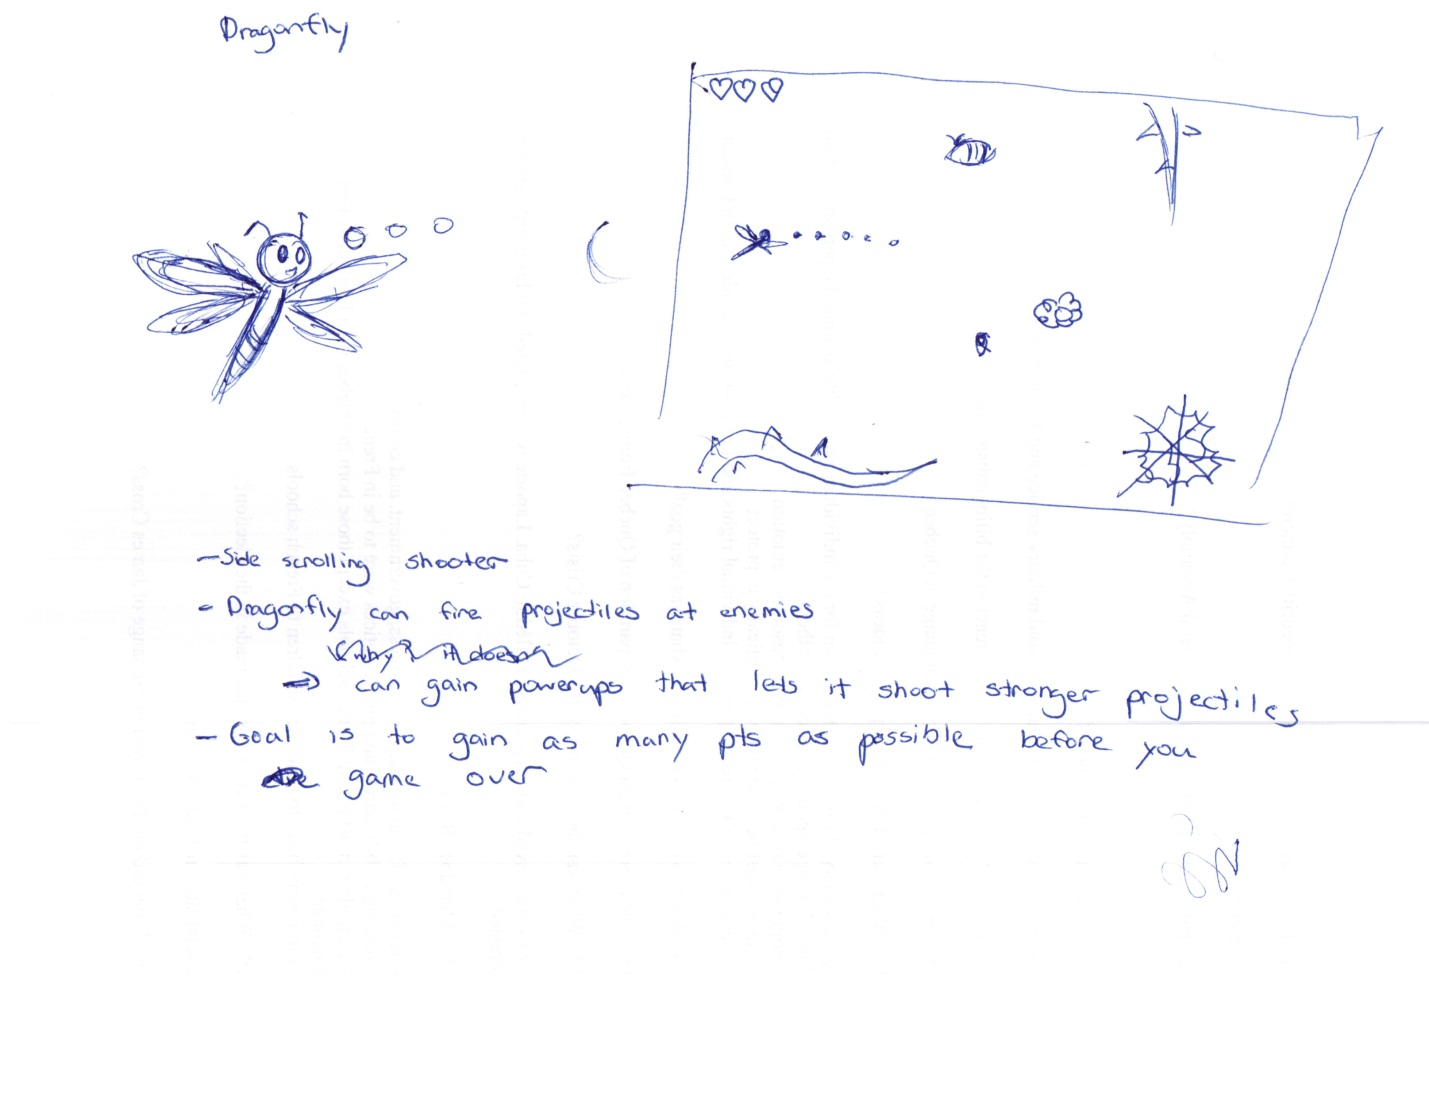 Dragonfly
- Side scrolling shooter
- Dragonfly can fire projectiles at enemies
⇒ can gain powerups that lets it shoot stronger projectiles
- Goal is to gain as many pts as possible before you
game over